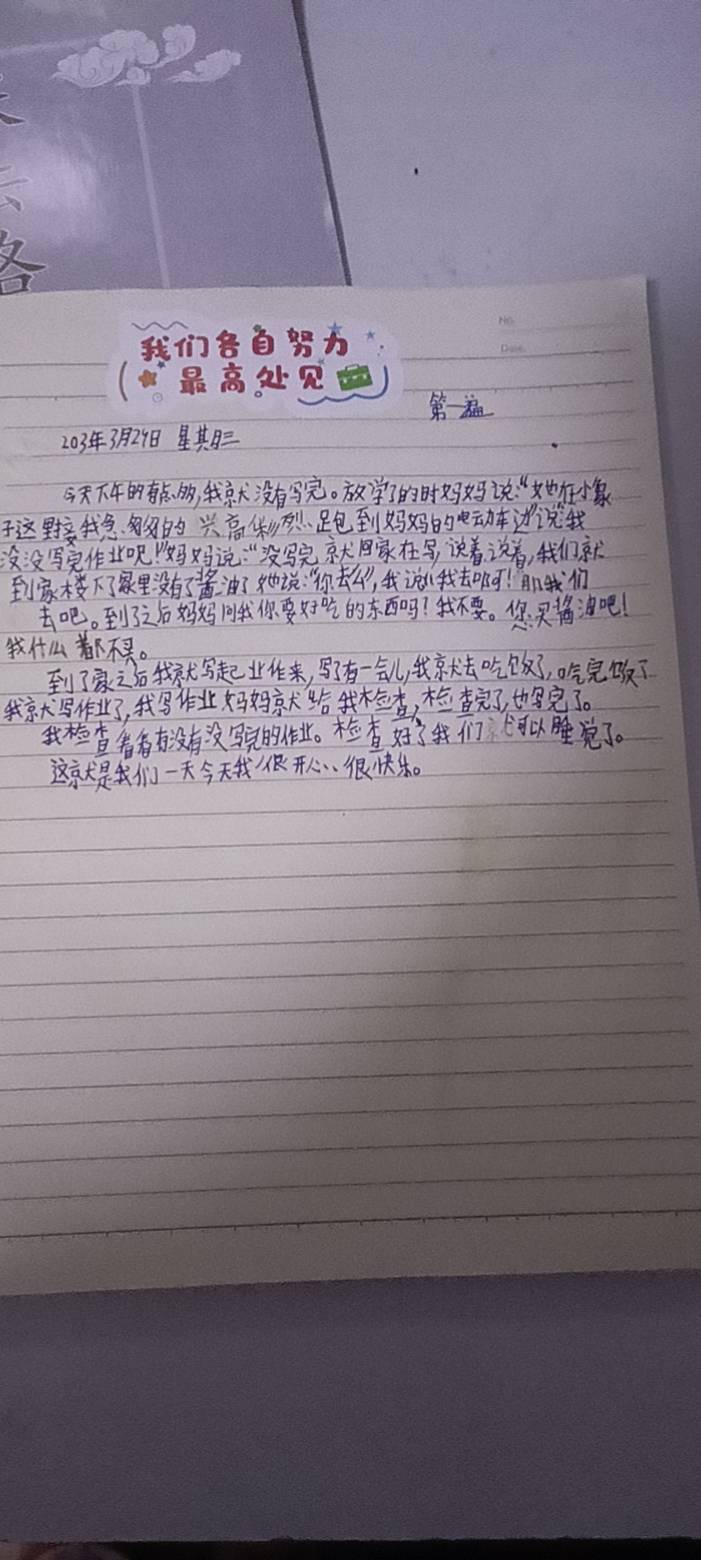 云
各
我们各自努力
最高处见
No.
Date.
第一篇
203年3月29日 星其月三
今天下午的有点多,我就没有写完。放学了的时妈妈说:“她在小象
子这里接我急匆匆的 兴高彩烈 包到妈妈的电动车边”说“我
没没写完作业呢!”妈妈说:“没写完就回家在写,说着说着,我们就
到家楼下了家里没有了酱油了她说:“你去么”,我说:“我去哪可!那我们
去吧。到了之后妈妈问我你要好吃的东西吗!我不要。您买酱油吧!
我什么都不买。
到了家之后我就写起业作来,写了有一会儿,我就去吃饭了,吃完饭了
我就写作业了,我写作业妈妈就给我检查,检查完了,也写完了。
我检查看看有没有没写完的作业。检查好了我们就可以睡觉了。
这就是我们一天今天我很开心、、很快乐。